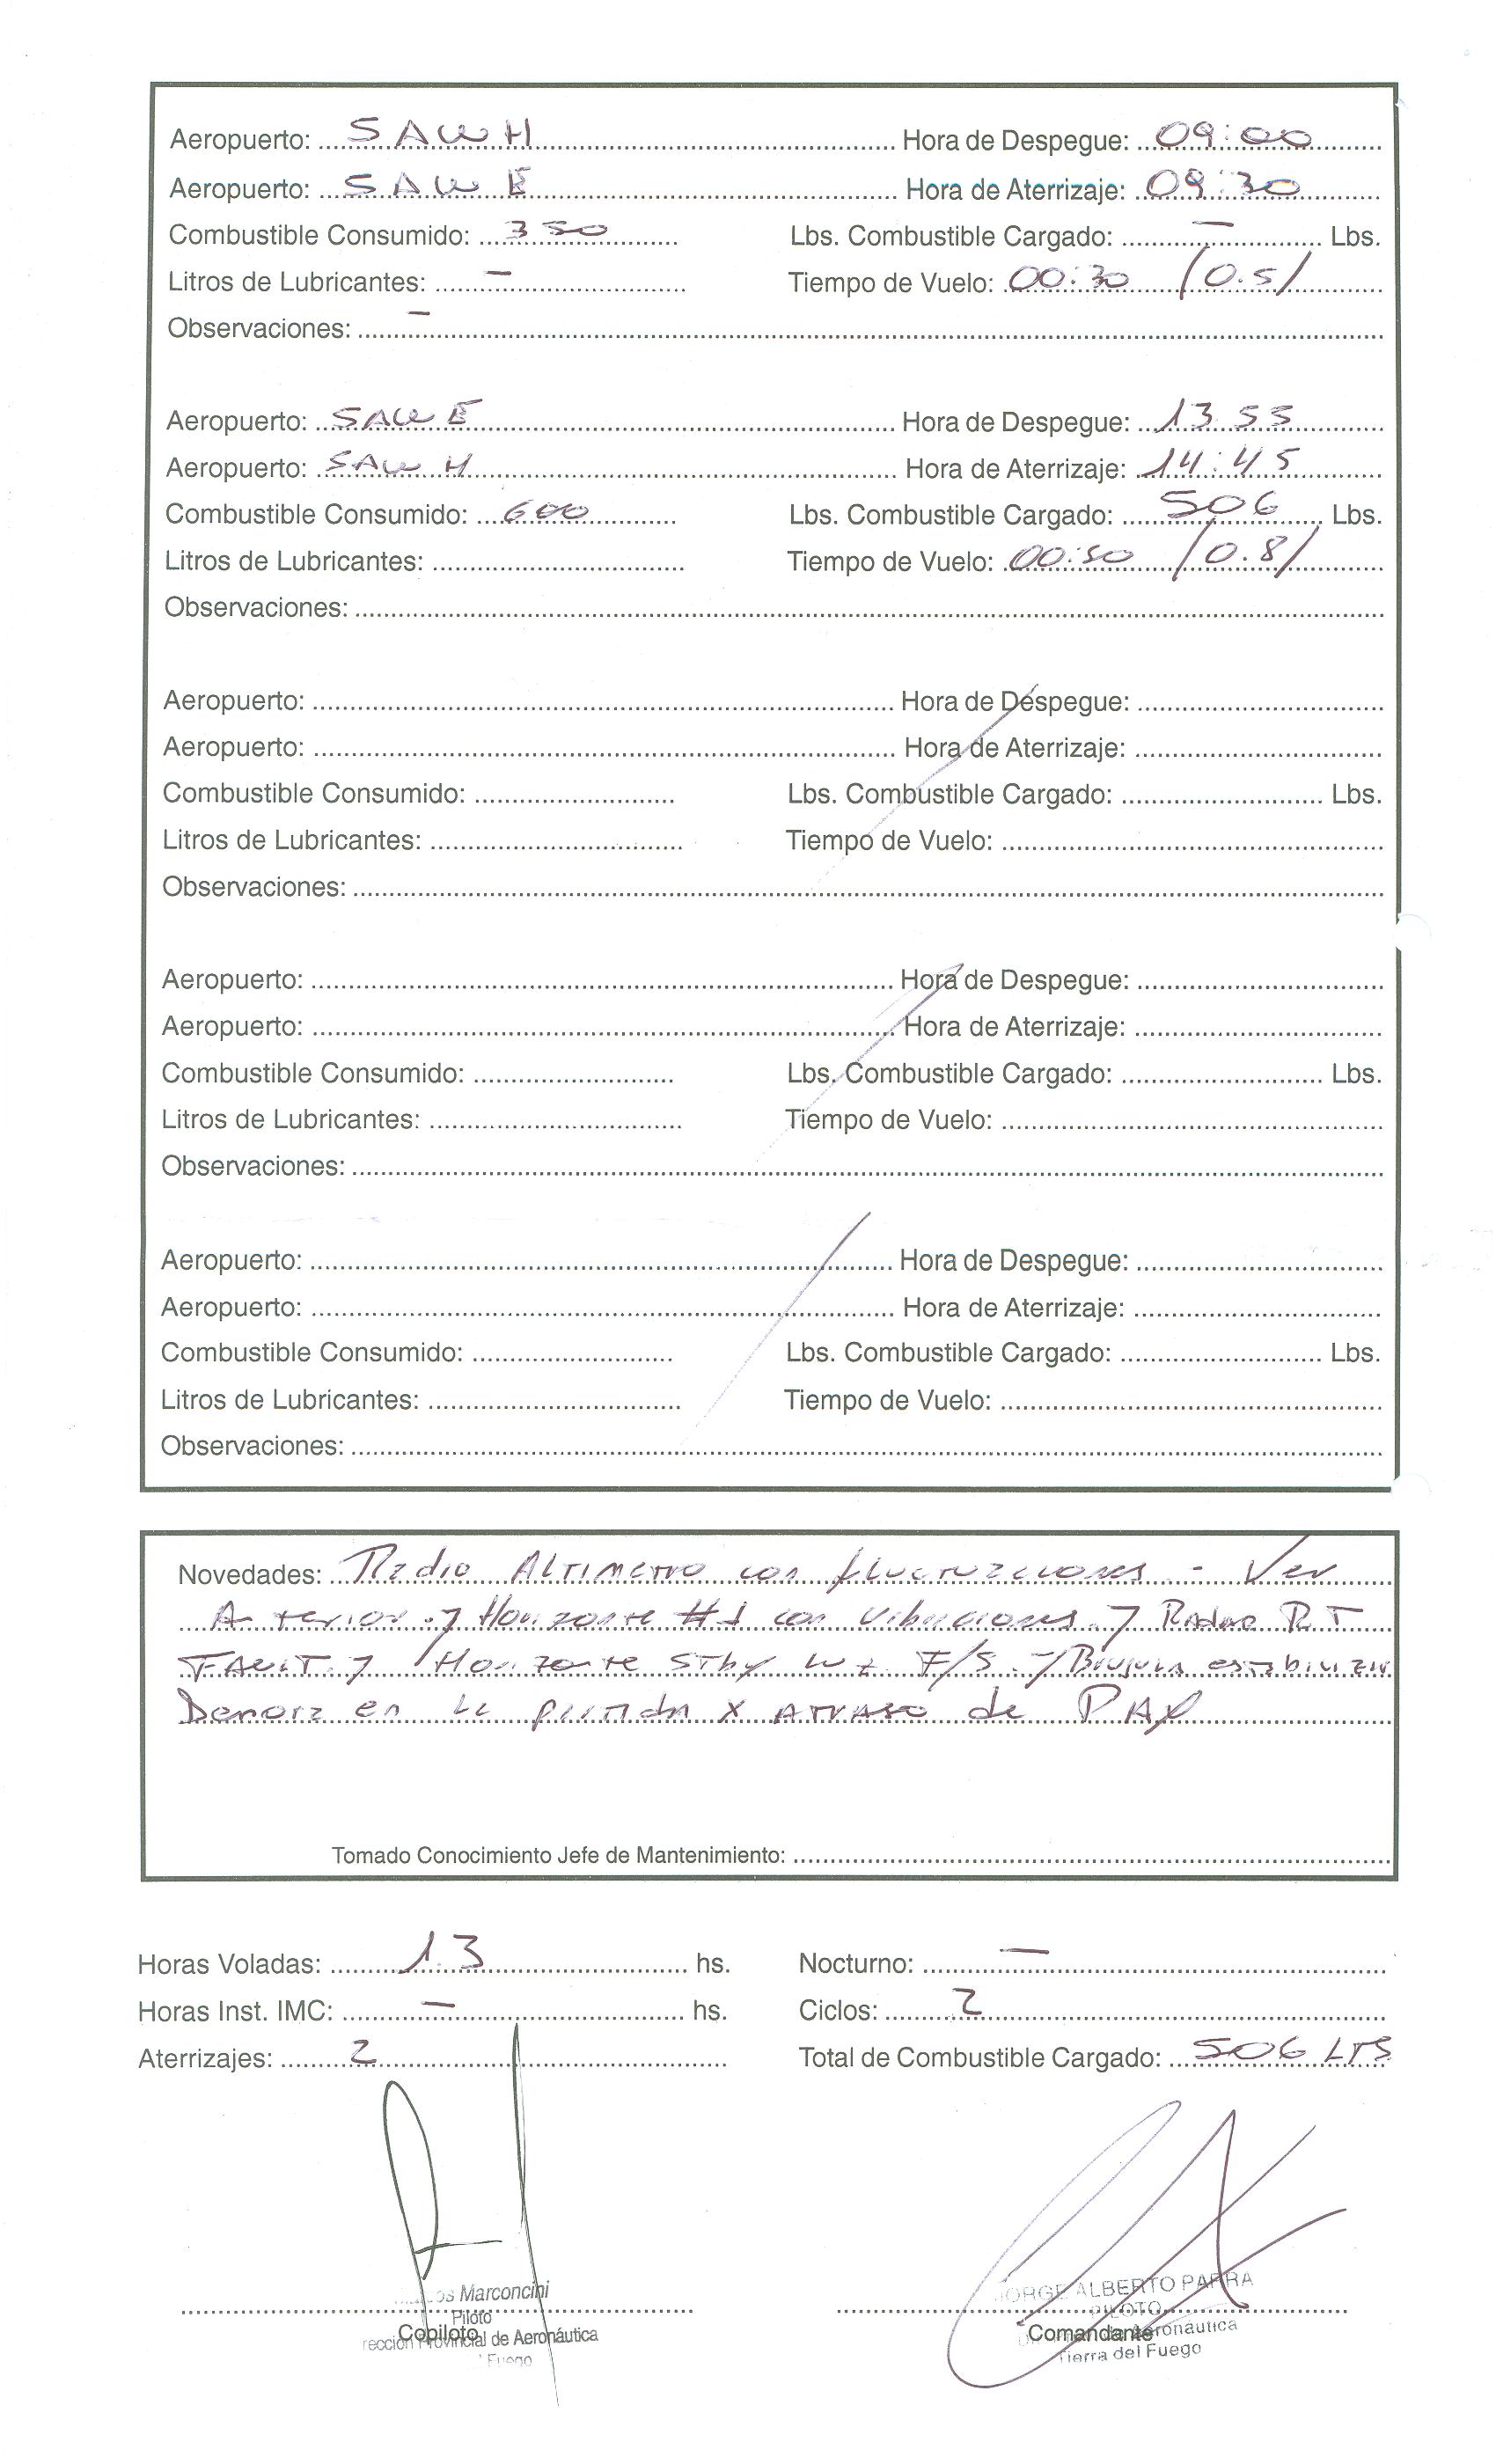 Aeropuerto: SAWH Hora de Despegue: 09:00
Aeropuerto: SAWE Hora de Aterrizaje: 09:30
Combustible Consumido: 350 Lbs. Combustible Cargado: — Lbs.
Litros de Lubricantes: — Tiempo de Vuelo: 00:30 /0.5/
Observaciones: —
Aeropuerto: SAWE Hora de Despegue: 13 55
Aeropuerto: SAWH Hora de Aterrizaje: 14:45
Combustible Consumido: 600 Lbs. Combustible Cargado: 506 Lbs.
Litros de Lubricantes: Tiempo de Vuelo: 00:50 /0.8/
Observaciones:
Aeropuerto: Hora de Despegue:
Aeropuerto: Hora de Aterrizaje:
Combustible Consumido: Lbs. Combustible Cargado: Lbs.
Litros de Lubricantes: Tiempo de Vuelo:
Observaciones:
Aeropuerto: Hora de Despegue:
Aeropuerto: Hora de Aterrizaje:
Combustible Consumido: Lbs. Combustible Cargado: Lbs.
Litros de Lubricantes: Tiempo de Vuelo:
Observaciones:
Aeropuerto: Hora de Despegue:
Aeropuerto: Hora de Aterrizaje:
Combustible Consumido: Lbs. Combustible Cargado: Lbs.
Litros de Lubricantes: Tiempo de Vuelo:
Observaciones:
Novedades: Radio Altimetro con fluctuaciones - Ver
Anterior. / Horizonte #1 con vibraciones. / Radar RT
FAULT. / Horizonte STby luz F/S. / Brujula
Demora en la partida x atraso de PAX
Tomado Conocimiento Jefe de Mantenimiento:
Horas Voladas: 1.3 hs. Nocturno: —
Horas Inst. IMC: — hs. Ciclos: 2
Aterrizajes: 2 Total de Combustible Cargado: 506 LTS
Marconcini
Piloto
Copiloto
Provincial de Aeronáutica
Fuego
JORGE ALBERTO PARRA
PILOTO
Comandante
Aeronáutica
Tierra del Fuego